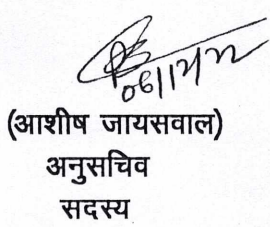 06/12/22
(आशीष जायसवाल)
अनुसचिव
सदस्य